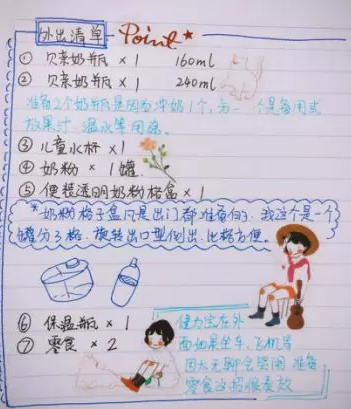 外出清单 Point
① 贝亲奶瓶 × 1 160ml
② 贝亲奶瓶 × 1 240ml
准备2个奶瓶是因为冲奶1个,另一个是备用或
放果汁、温水等用途。
③ 儿童水杯 × 1
④ 奶粉 × 1罐
⑤ 便装透明奶粉格盒 × 1
*奶粉格子盒凡是出门都准备的,我这个是一个
罐分3格.旋转出口型倒出.比格方便。
⑥ 保温瓶 × 1
⑦ 零食 × 2
宝在外
面如果坐车、飞机等
因太无聊会哭闹 准备
零食这招很奏效